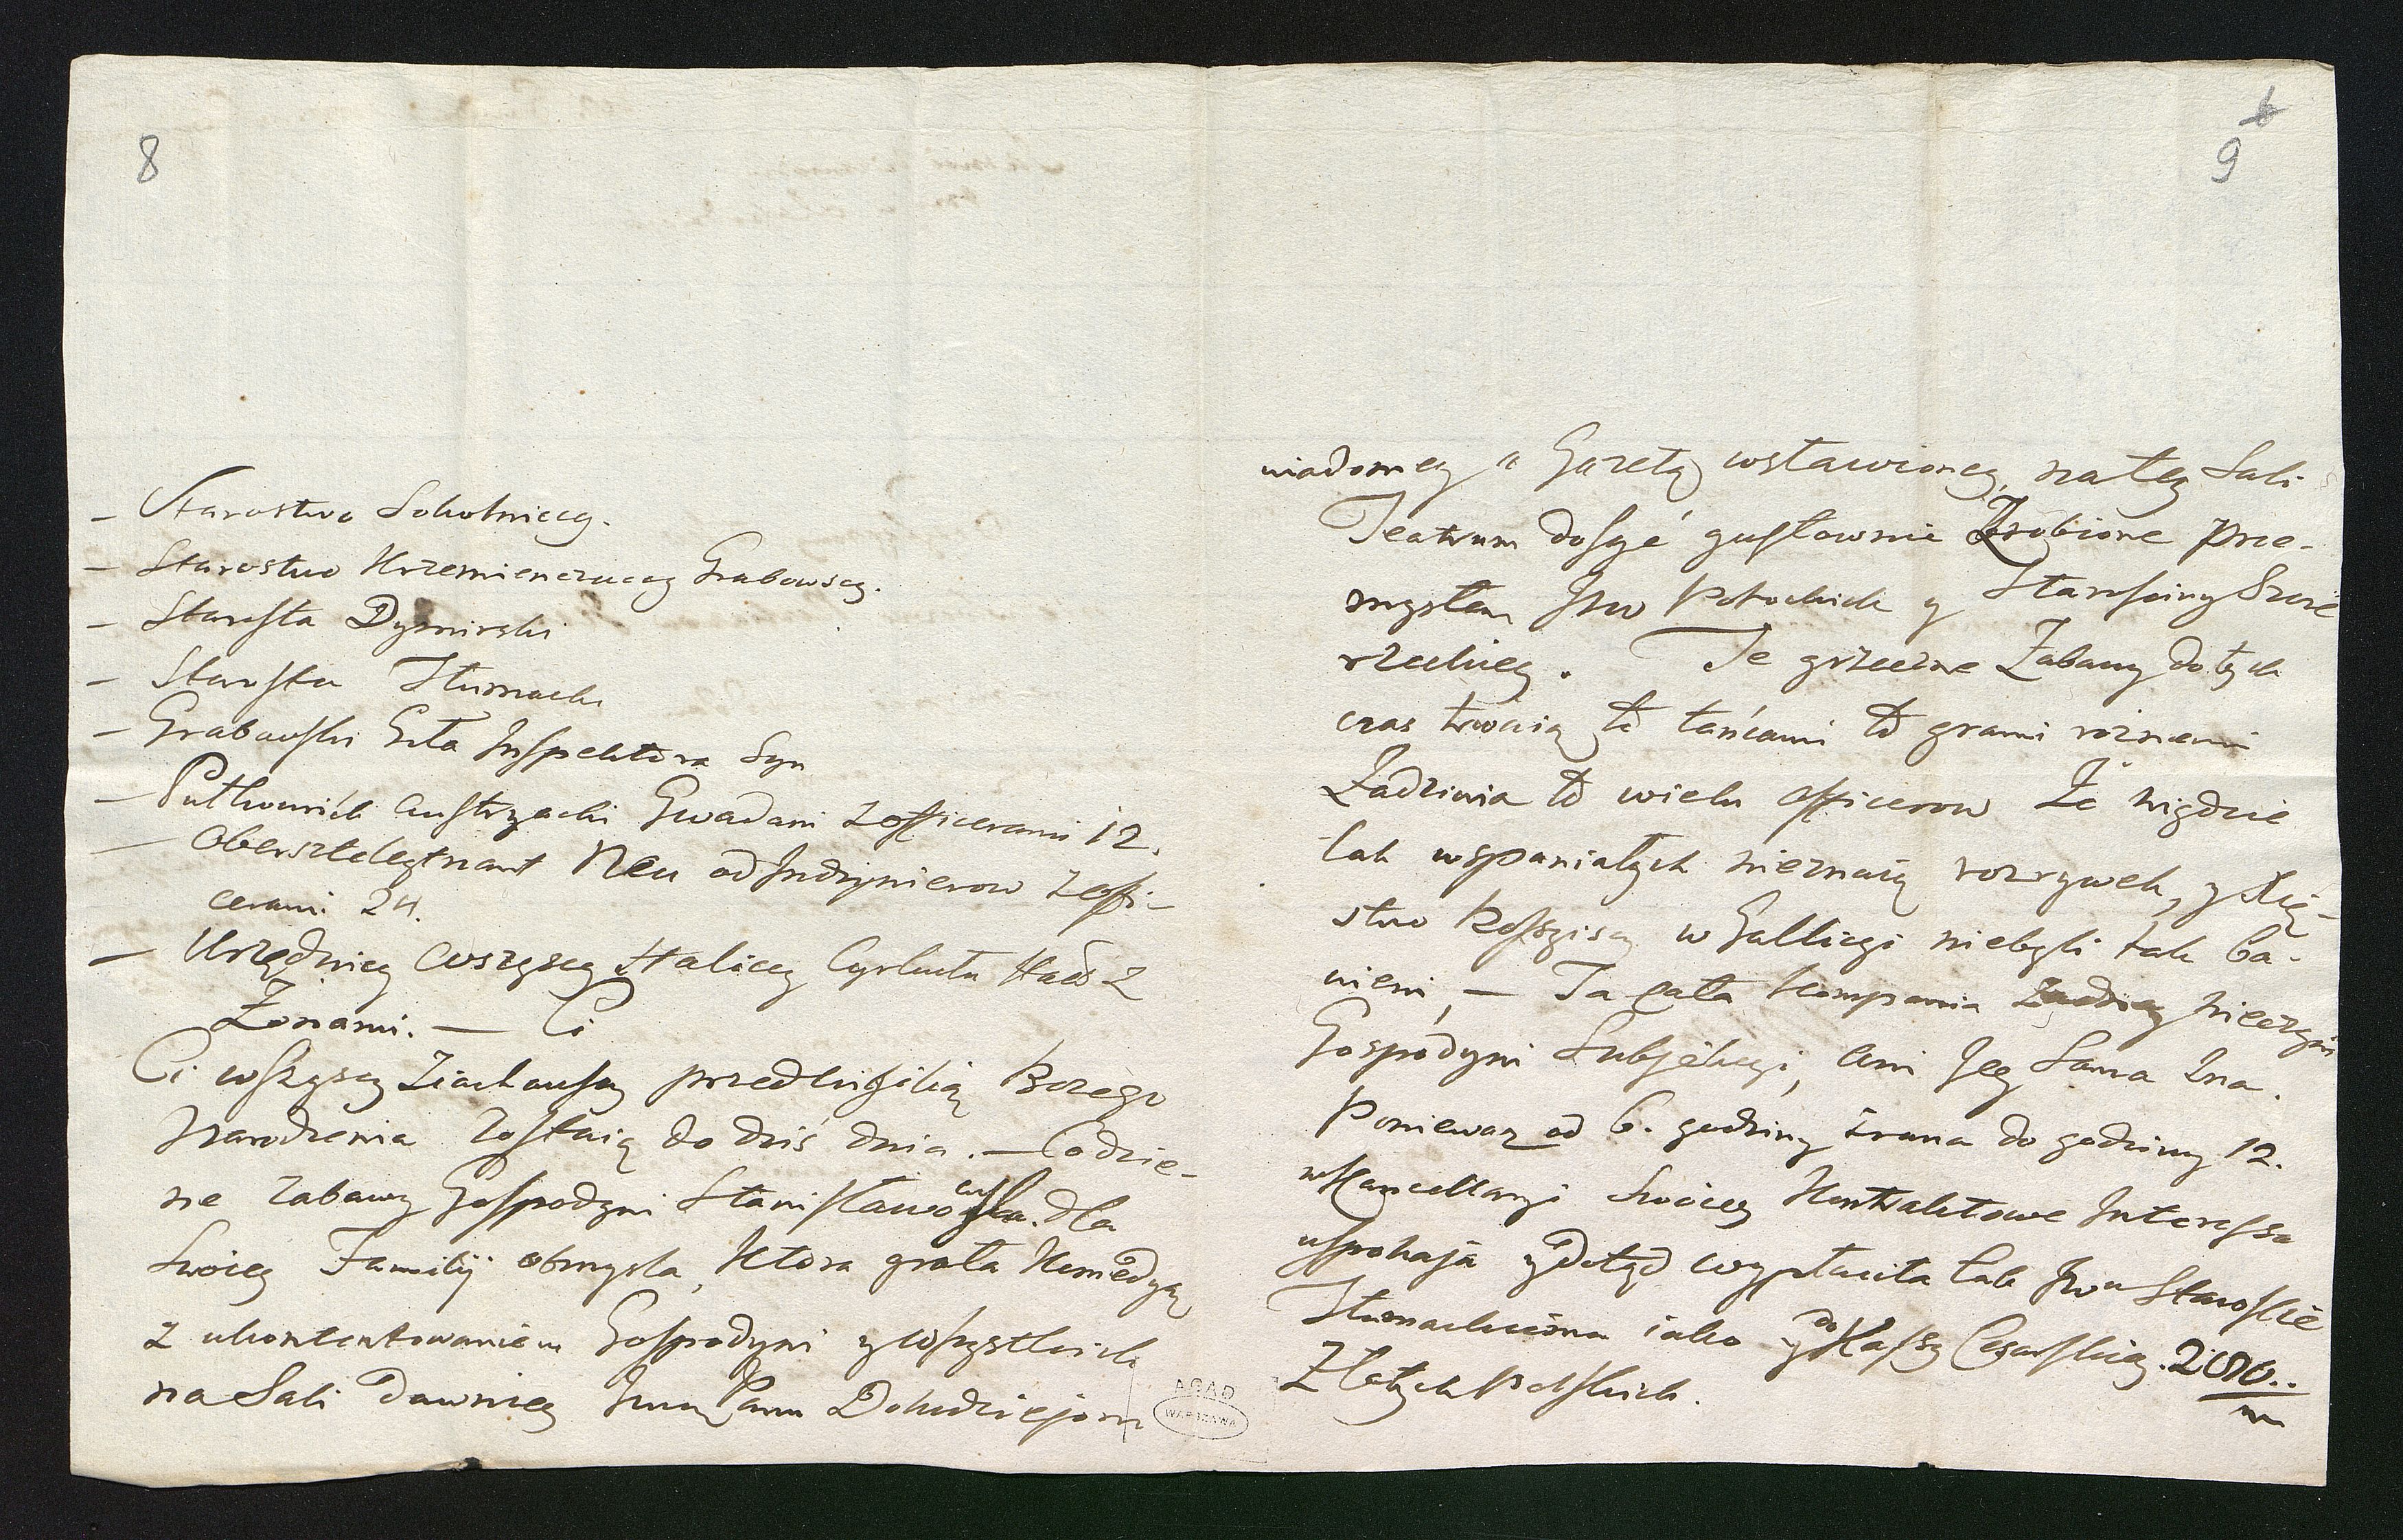 8
– Starostwo Sokolniccy.
– Starostwo Krzemienczuccy Grabowscy.
– Starosta Dymirski
– Starosta Tłumacki
– Grabowski Grła Inspektora Syn
– Pułkownik Austryacki Gwadani z officerami 12.
– Obersztleytnant Neu od Indżynierow z offi-
cerami 24.
– Urzędnicy wszyscy Haliccy Cyrkułu Stadt z
Żonami. — Ci
Ci wszyscy ziachawszy przed Wigilią Bożego
Narodzenia zostaią do dziś dnia. — Codzie-
ne zabawy Gospodyni Stanisławowska dla
Swoiey Familij obmysla, Ktora grała Komedyą
z ukontentowaniem Gospodyni y wszystkich
na Sali dawniey Pana Dołudziejom
AGAD
WARSZAWA
6
9
wiadomey a Gazetą wsławioney, na tey Sali
Teatrum dosyć gustownie Zrobione prze-
mysłem JWW Potockich y Starosciny Szcze
rzeckiey. Te grzeczne Zabawy do tych
czas trwaią to tańcami to grami rożnemi
Zadziwia to wielu officerow Że nigdzie
tak wspaniałych nieznaią rozrywek, y Xię-
stwo Rossyiscy w Gallicyi niebyli tak ba-
wieni, — Ta cała kompania żadney nieczyni
Gospodyni Subjekcyi, ani Jey Sama zna.
Ponieważ od 6. godziny zrana do godziny 12.
w Kancellaryi Swoiey Kontraktowe Interessa
uspokaja y dotąd wypłaciła tak JWu Staroscie
Tłumackiemu iako y do Kassy Cesarskiey. 200..
Złotych Polskich.